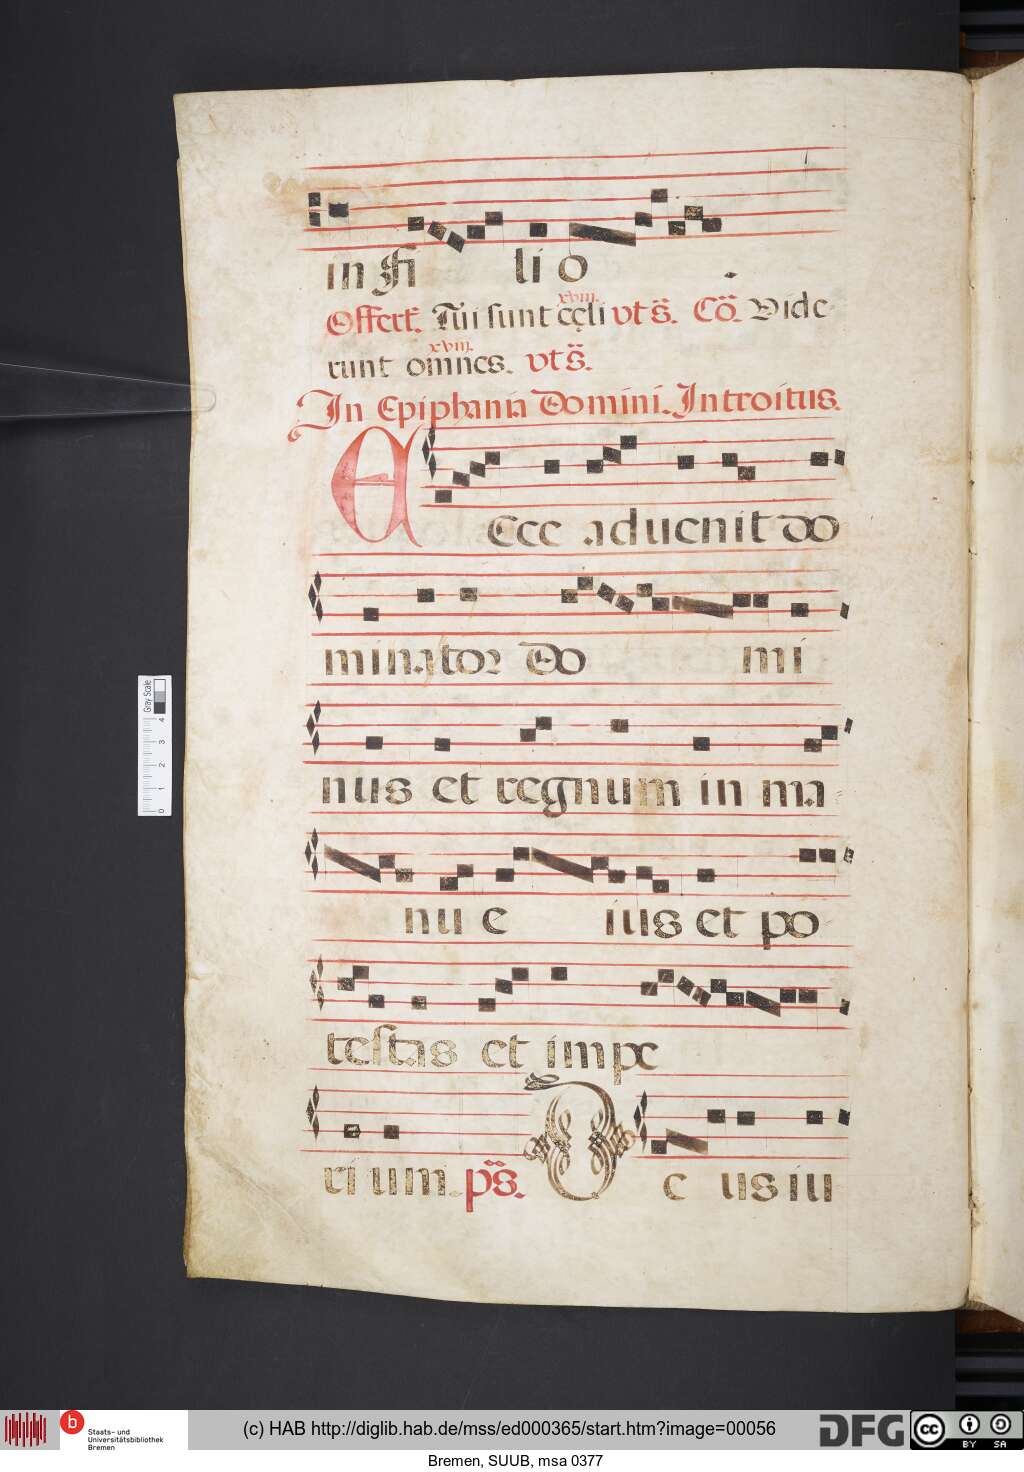 in Fi li o
xviii.
Offert. Tui sunt cęli vt s. Cō. Vide
xviii.
runt omnes. vt s.
In Epiphania Domini. Introitus.
Ecce aduenit do
minator Do mi
nus et regnum in ma
nu e ius et po
testas et impe
rium. ps. D e us iu
Gray Scale
4
3
2
1
0
b
Staats- und
Universitätsbibliothek
Bremen
(c) HAB http://diglib.hab.de/mss/ed000365/start.htm?image=00056
DFG
cc BY SA
Bremen, SUUB, msa 0377